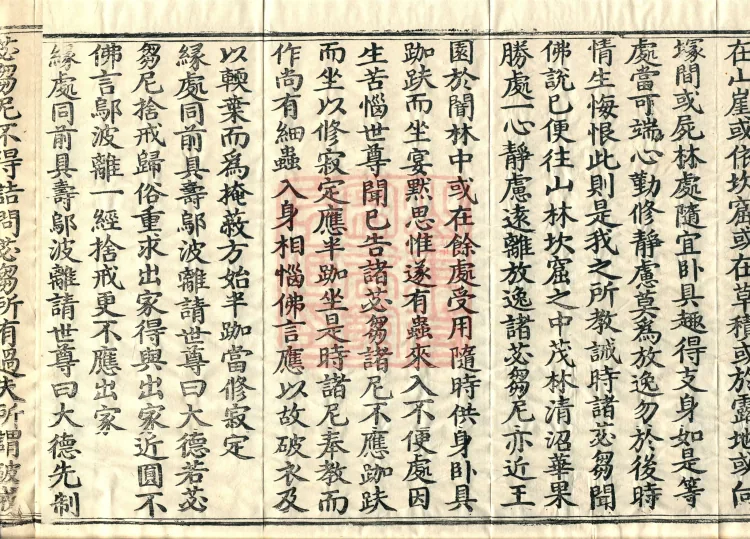 在山崖或依坎窟或在草積或於露地或向
塚間或屍林處隨宜卧具趣得支身如是等
處當可端心勤修靜慮莫為放逸勿於後時
情生悔恨此則是我之所教誡時諸苾芻聞
佛說已便往山林坎窟之中茂林清沼華果
勝處一心靜慮遠離放逸諸苾芻尼亦近王
園於闇林中或在餘處受用隨時供身卧具
跏趺而坐宴默思惟遂有蟲來入不便處因
生苦惱世尊聞已告諸苾芻諸尼不應跏趺
而坐以修寂定應半跏坐是時諸尼奉教而
作尚有細蟲入身相惱佛言應以故破衣及
以輭葉而為掩蔽方始半跏當修寂定
緣處同前具壽鄔波離請世尊曰大德若苾
芻尼捨戒歸俗重求出家得與出家近圓不
佛言鄔波離一經捨戒更不應出家
緣處同前具壽鄔波離請世尊曰大德先制
苾芻尼不得詰問苾芻所有過失所謂破戒